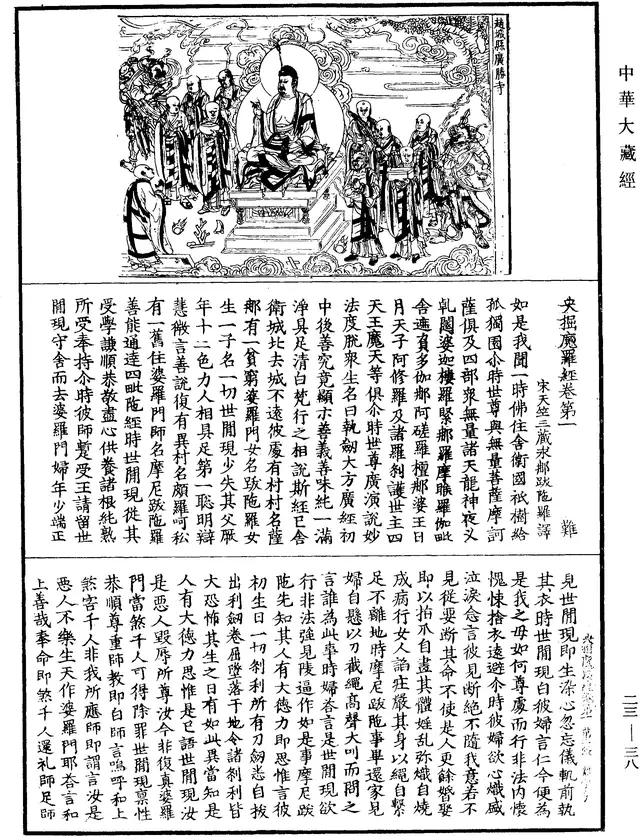 中華大藏經
趙城縣廣勝寺
央掘魔羅經卷第一 難
宋天竺三藏求那跋陁羅譯
如是我聞一時佛住舍衛國祇樹給
孤獨園尒時世尊與無量菩薩摩訶
薩俱及四部衆無量諸天龍神夜叉
乹闥婆迦樓羅緊那羅摩睺羅伽毗
舍遮負多伽那阿磋羅檀那婆王日
月天子阿修羅及諸羅刹護世主四
天王魔天等俱尒時世尊廣演說妙
法度脫衆生名曰執劒大方廣經初
中後善究竟顯示善義善味純一滿
淨具足清白梵行之相說斯經已舍
衛城北去城不遠彼處有村村名薩
那有一貧窮婆羅門女名跋陁羅女
生一子名一切世間現少失其父厥
年十二色力人相具足第一聦明辯
慧微言善說復有異村名頗羅呵私
有一舊住婆羅門師名摩尼跋陁羅
善能通達四毗陁經時世間現從其
受學謙順恭敬盡心供養諸根純熟
所受奉持尒時彼師暫受王請留世
間現守舍而去婆羅門婦年少端正
見世間現即生染心忽忘儀軌前執
其衣時世間現白彼婦言仁今便為
是我之母如何尊處而行非法内懷
愧悚捨衣遠避尒時彼婦欲心熾盛
泣淚念言彼見斷絶不隨我意若不
見從要斷其命不使是人更餘㛰娶
即以指爪自畫其體婬乱弥熾自燒
成病行女人諂莊嚴其身以繩自繫
足不離地時摩尼跋陁事畢還家見
婦自懸以刀截繩高聲大叫而問之
言誰為此事時婦荅言是世間現欲
行非法強見陵逼作如是事摩尼跋
陁先知其人有大德力即思惟言彼
初生日一切刹利所有刀劒悉自拔
出利劒卷屈墜落于地令諸刹利皆
大恐怖其生之日有如此異當知是
人有大德力思惟是已語世間現汝
是惡人毀辱所尊汝今非復真婆羅
門當煞千人可得除罪世間現禀性
恭順尊重師教即白師言嗚呼和上
煞害千人非我所應師即謂言汝是
惡人不樂生天作婆羅門耶荅言和
上善哉奉命即煞千人還礼師足師
二三—三八